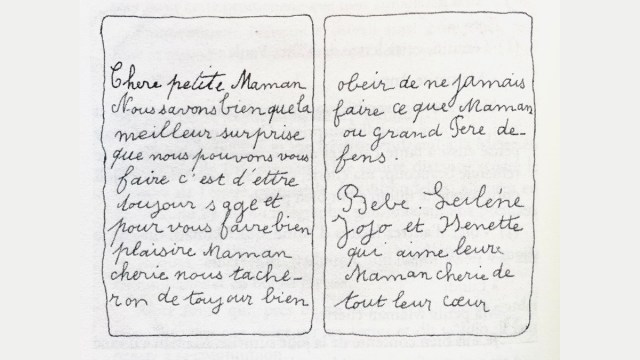 Chere petite Maman
Nous savons bien que la
meilleur surprise
que nous pouvons vous
faire c'est d'ettre
toujour sage et
pour vous faire bien
plaisire Maman
cherie nous tache-
ron de toujour bien
obeir de ne jamais
faire ce que Maman
ou grand Pere de-
fens.
Bebe. Gerlène
Jojo et Nenette
qui aime leure
Maman cherie de
tout leur cœur